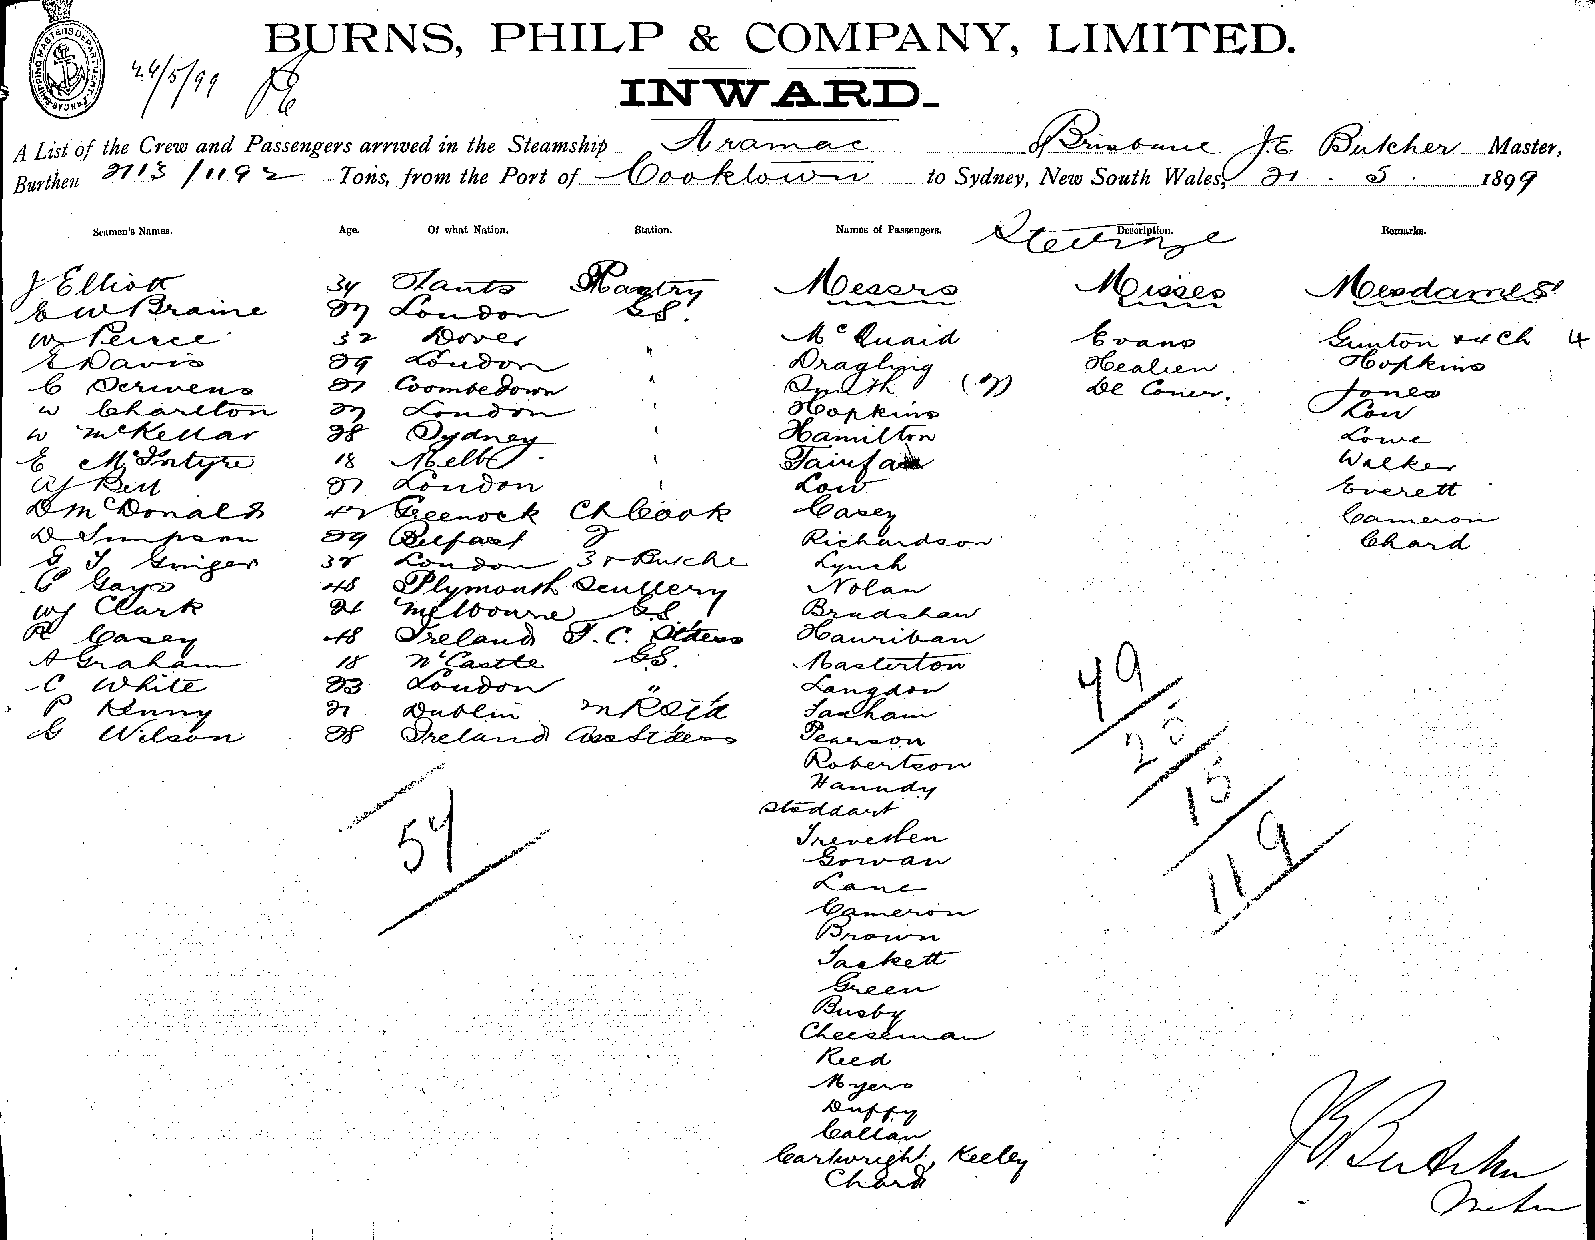 BURNS, PHILP & COMPANY, LIMITED.
INWARD.
24/5/99
A List of the Crew and Passengers arrived in the Steamship Aramac Brisbane J.E Butcher Master,
Burthen 2113/1192 Tons, from the Port of Cooktown to Sydney, New South Wales, 21 . 5 . 1899
Seamen's Names. Age. Of what Nation. Station. Names of Passengers. Steerage Description. Remarks.
J Elliott 34 Hants Pantry Messrs Misses Mesdames
E W Braine 27 London G.S.
W Peirce 32 Dover " Mc Quaid Evans Gunton & 4 Ch 4
E Davis 29 London Dragling Healien Hopkins
C Scrivens 21 Coombedown " Smith (2) De Coner. Jones
W Charlton 27 London ' Hopkins Low
W McKellar 28 Sydney ' Hamilton Lowe
E McIntyre 18 Melb ' Fairfax Walker
W J Bell 21 London ' Low Everett
D McDonald 42 Greenock Ch Cook Casey Cameron
D Simpson 29 Belfast 2 Richardson Chard
G T Ginger 32 London 3 & Butche Lynch
C Gays 48 Plymouth Scullery Nolan
W J Clark 21 Melbourne G.S. Bradshaw
R Casey 48 Ireland F.C. Stdess Hauriban
A Graham 18 N'Castle G.S. Masterton
C White 23 London " Langdon
P Kenny 21 Dublin Farham
G Wilson 28 Ireland Ass Stdess Pearson
Robertson
Hanndy
Stoddart
Treveshen
Gowan
Lane
Cameron
Brown
Tackett
Green
Busby
Cheeseman
Reed
Myers
Duffy
Callan
Cartwright, Keeley
Chard
54
49
25
15
119
J E Butcher
Master